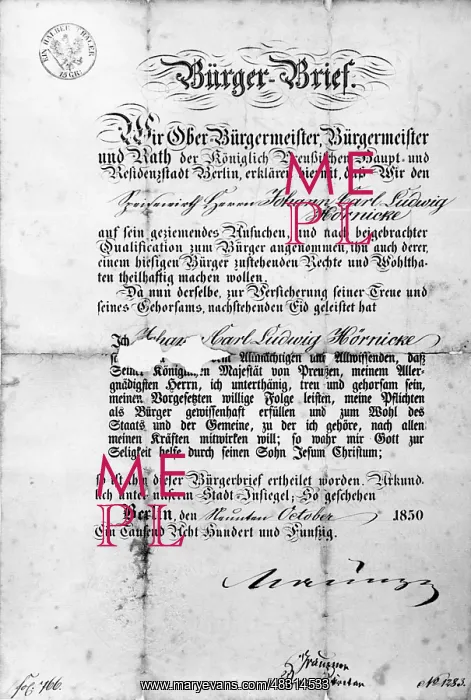 EIN HALBER THALER
15 GR:
Bürger-Brief.
Wir Ober-Bürgermeister, Bürgermeister
und Rath der Königlich Preußischen Haupt- und
Residenzstadt Berlin, erklären hiemit, daß Wir den
Speisewirth Herrn Johann Carl Ludwig
Hörnicke
auf sein geziemendes Ansuchen, und nach beigebrachter
Qualification zum Bürger angenommen, ihn auch derer,
einem hiesigen Bürger zustehenden Rechte und Wohltha-
ten theilhaftig machen wollen.
Da nun derselbe, zur Versicherung seiner Treue und
seines Gehorsams, nachstehenden Eid geleistet hat
Ich Johan Carl Ludwig Hörnicke
dem Allmächtigen und Allwissenden, daß
Seiner Königlichen Majestät von Preußen, meinem Aller-
gnädigsten Herrn, ich unterthänig, treu und gehorsam sein,
meinen Vorgesetzten willige Folge leisten, meine Pflichten
als Bürger gewissenhaft erfüllen und zum Wohl des
Staats und der Gemeine, zu der ich gehöre, nach allen
meinen Kräften mitwirken will; so wahr mir Gott zur
Seligkeit helfe durch seinen Sohn Jesum Christum;
so ist ihm dieser Bürgerbrief ertheilet worden. Urkund-
lich unter unserm Stadt-Insiegel; So geschehen
Berlin, den Neunten October 1850
Ein Tausend Acht Hundert und Funfzig.
ME
PL
ME
PL
fol. 766.
www.maryevans.com/48814583